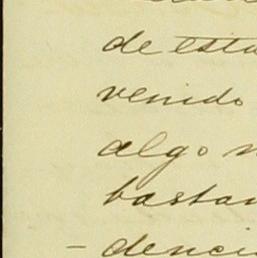 de esta
venido
algo
bastan
- denci